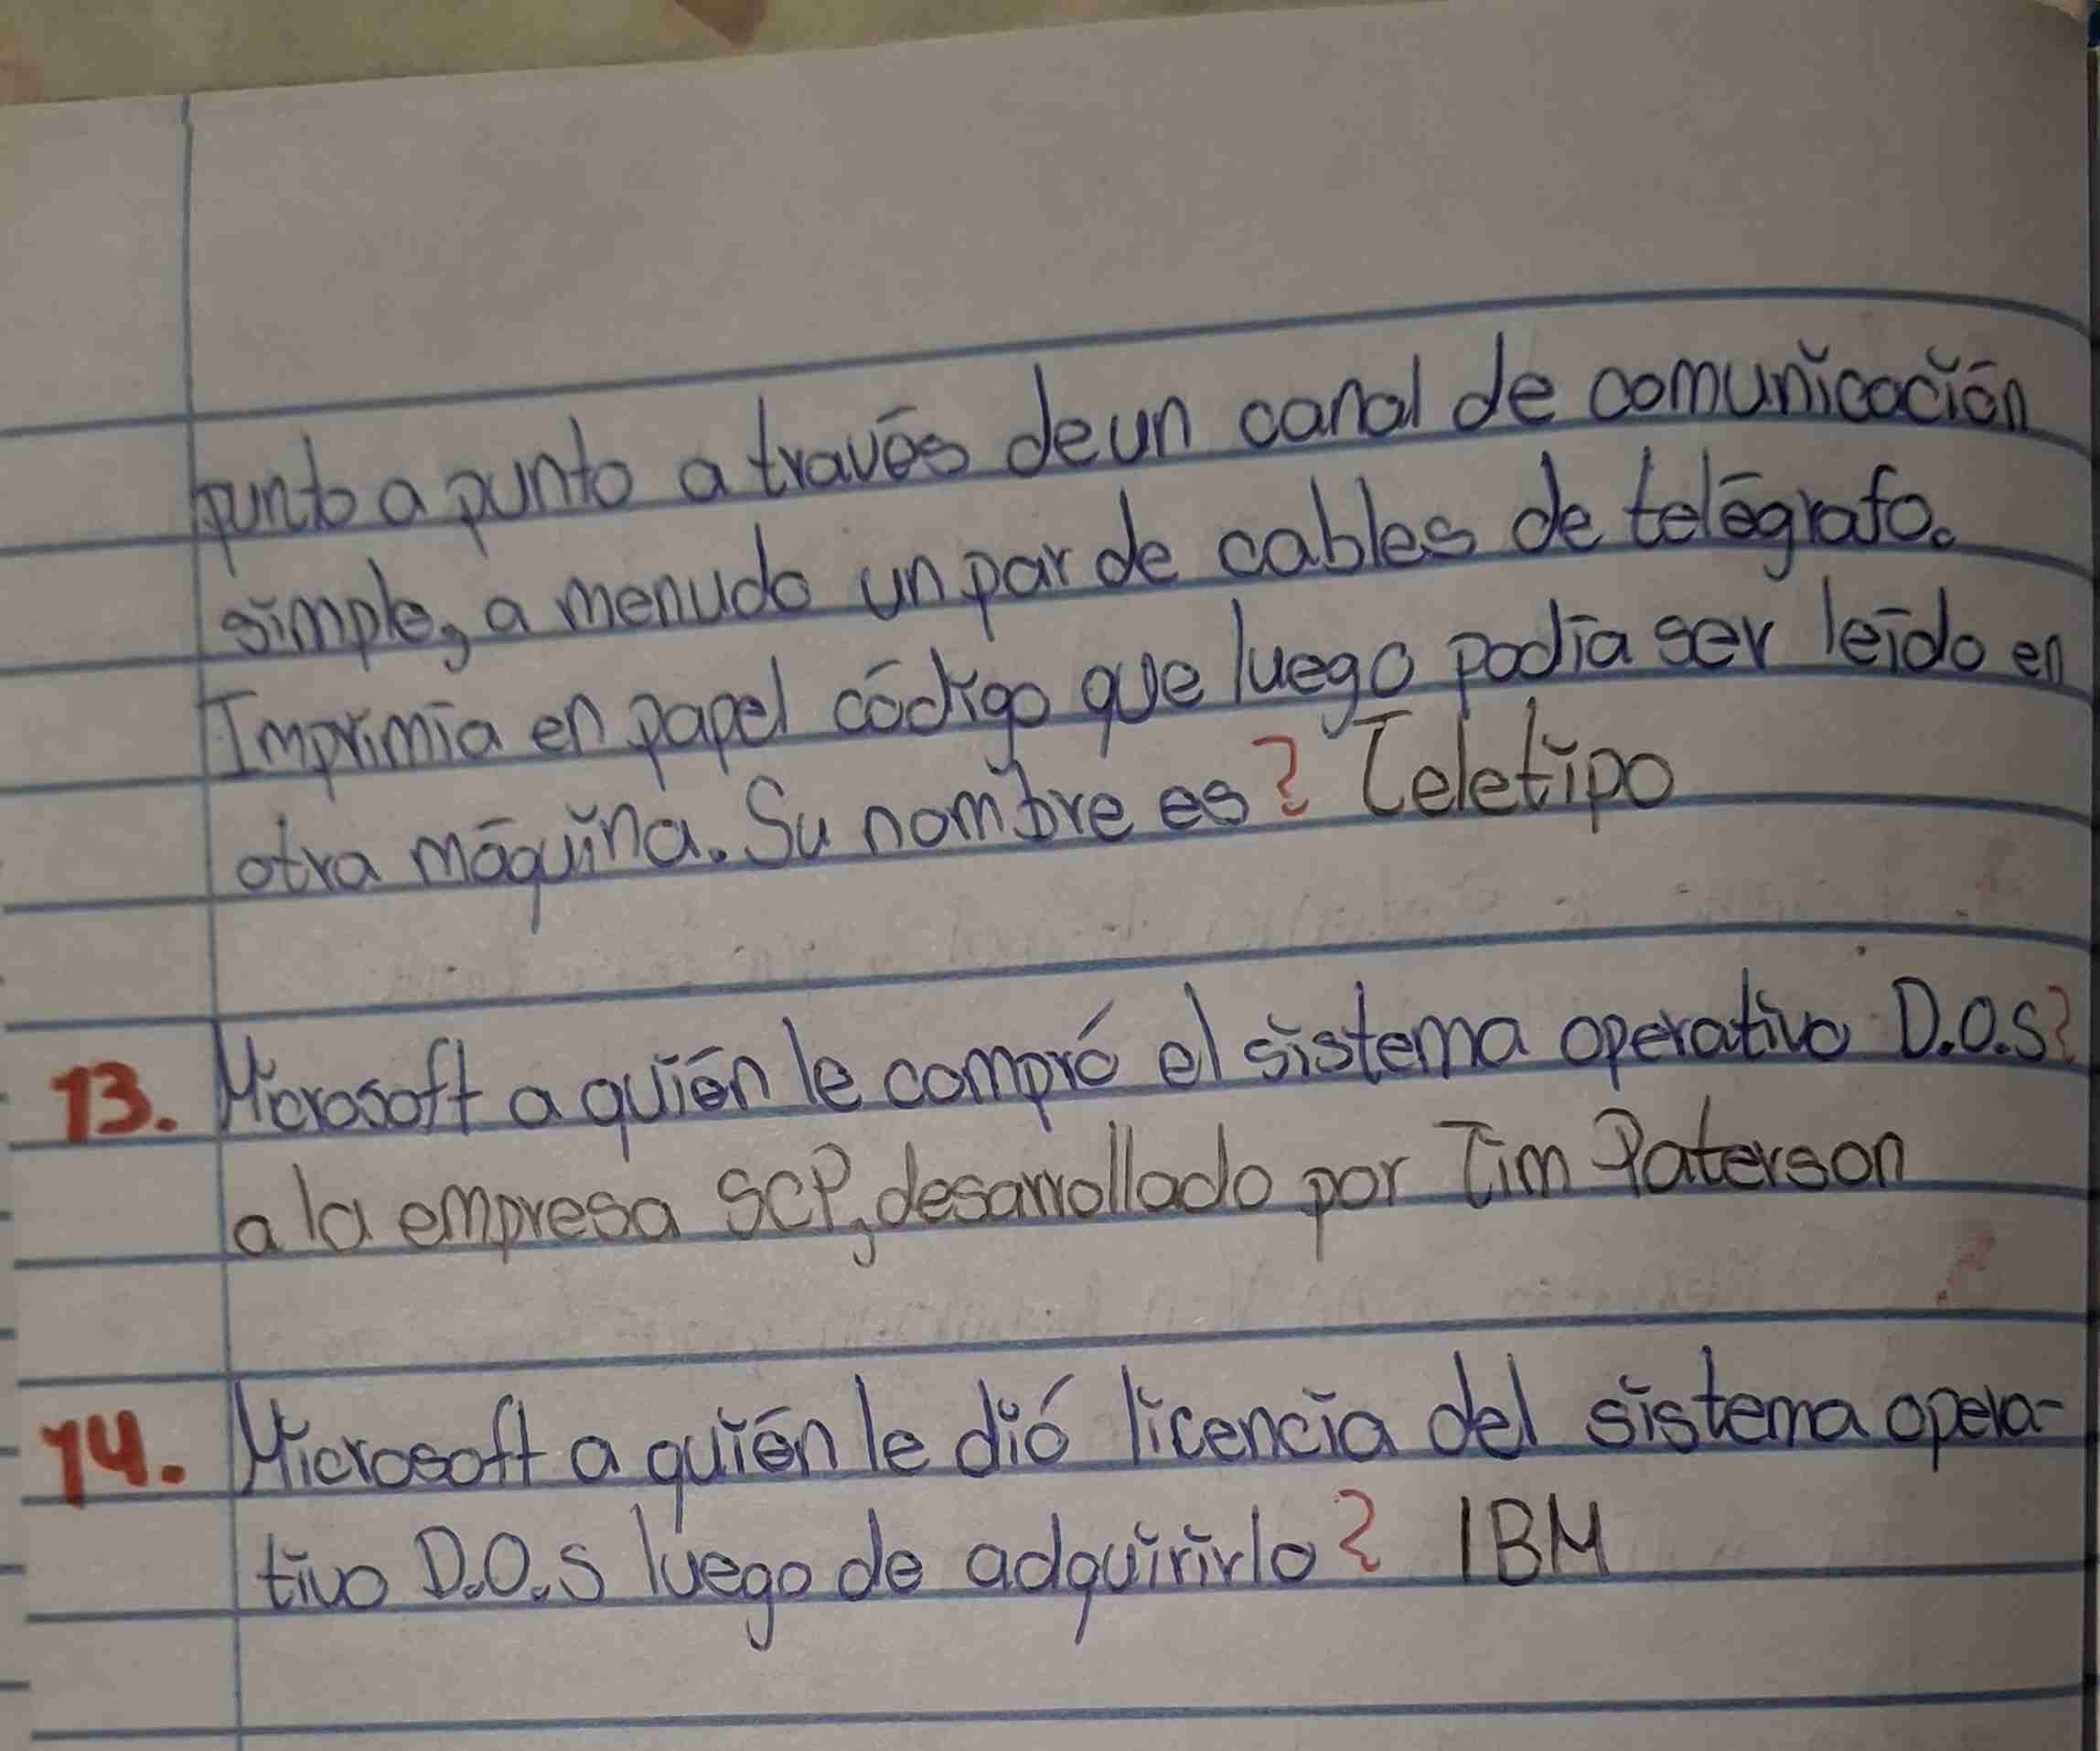 punto a punto a través de un canal de comunicación
simple, a menudo un par de cables de telégrafo.
Imprimia en papel código que luego podía ser leído en
otra máquina. Su nombre es? Teletipo
13. Microsoft a quién le compró el sistema operativo D.O.S?
a la empresa SCP, desarrollado por Tim Paterson
14. Microsoft a quién le dió licencia del sistema opera-
tivo D.O.S luego de adquirirlo? IBM